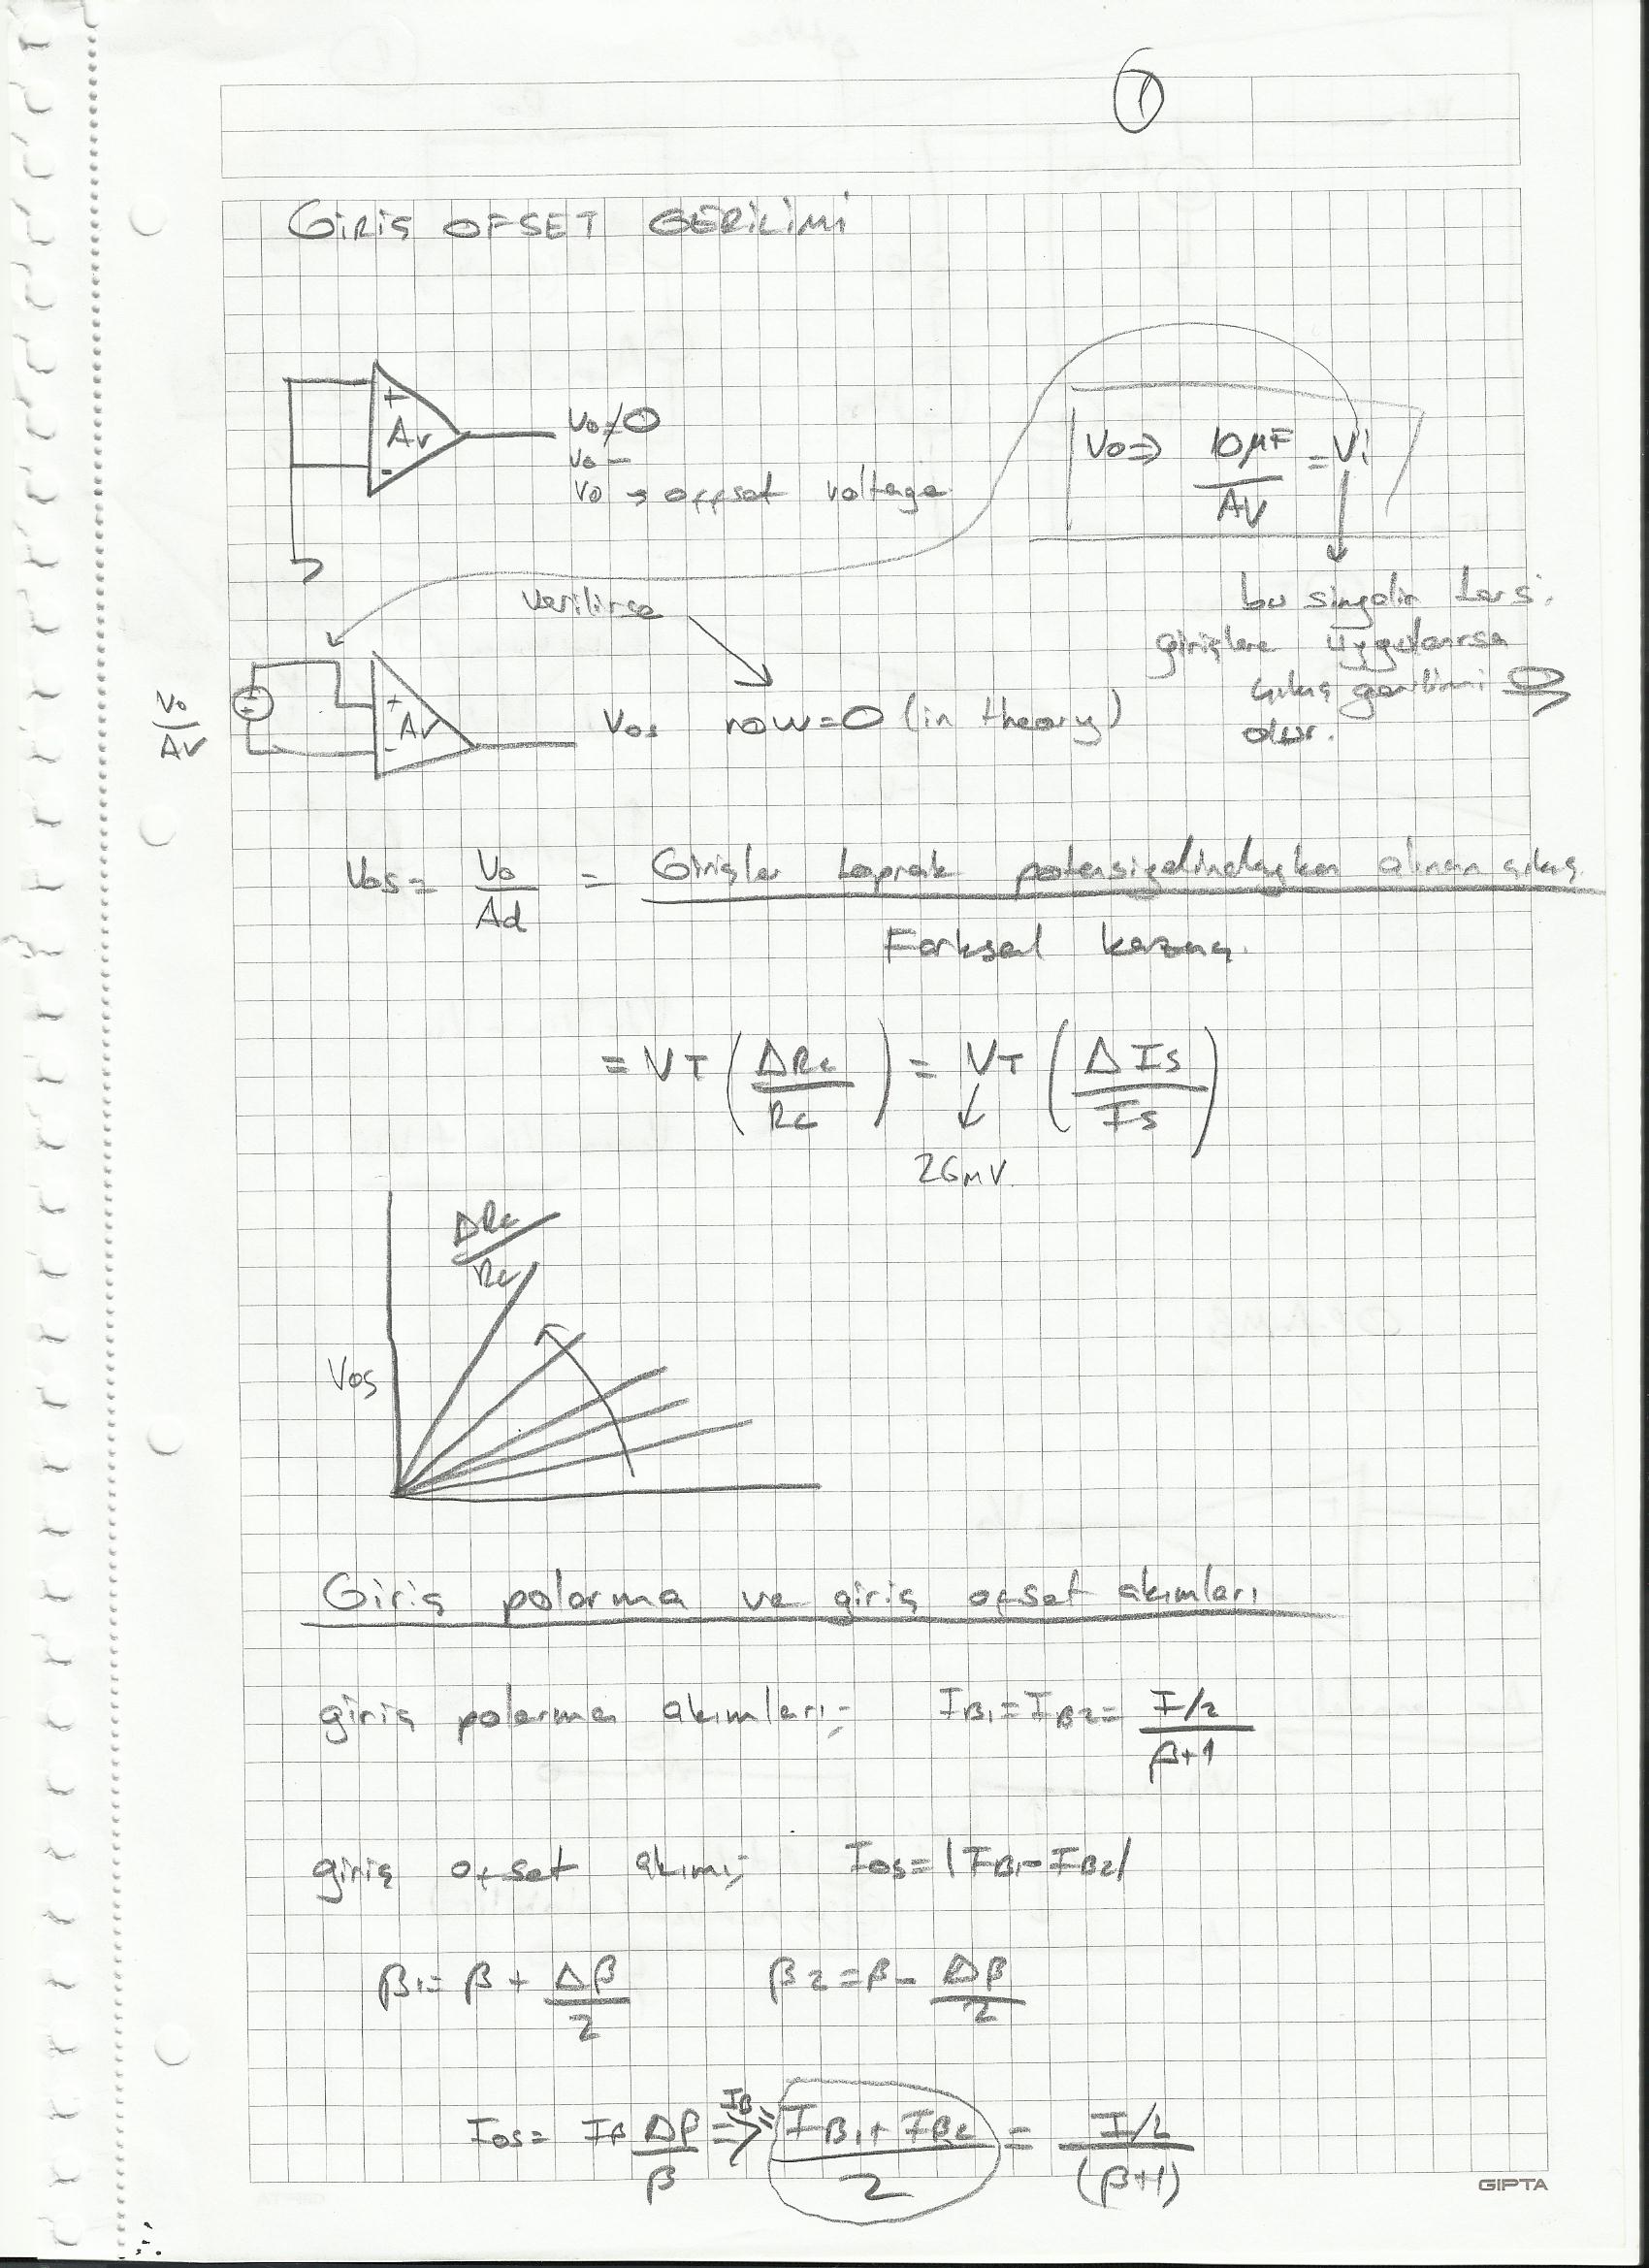 1
GİRİŞ OFSET GERİLİMİ
+
Av
-
Vo≠0
Vo=
Vo → offset voltage
Vo⇒ 10µF/AV = Vi
bu singalin tersi
girişlere uygulanırsa
çıkış gerilimi 0
olur.
verilirse
Vo/AV
+
Av
-
Vos now=0 (in theory)
Vos = Vo/Ad = Girişler toprak potensiyelindeyken alınan çıkış
Farksal kazanç.
= VT (ΔRc/Rc) = VT (ΔIs/Is)
26mV
ΔRc/Rc
Vos
Giriş polarma ve giriş ofset akımları
giriş polarma akımları;- IB1=IB2= I/2/β+1
giriş ofset akımı;- Ios=|IB1-IB2|
β1= β + Δβ/2 β2=β- Δβ/2
Ios= IB Δβ/β ⇒ IB = IB1+IB2/2 = I/2/(β+1)
GIPTA